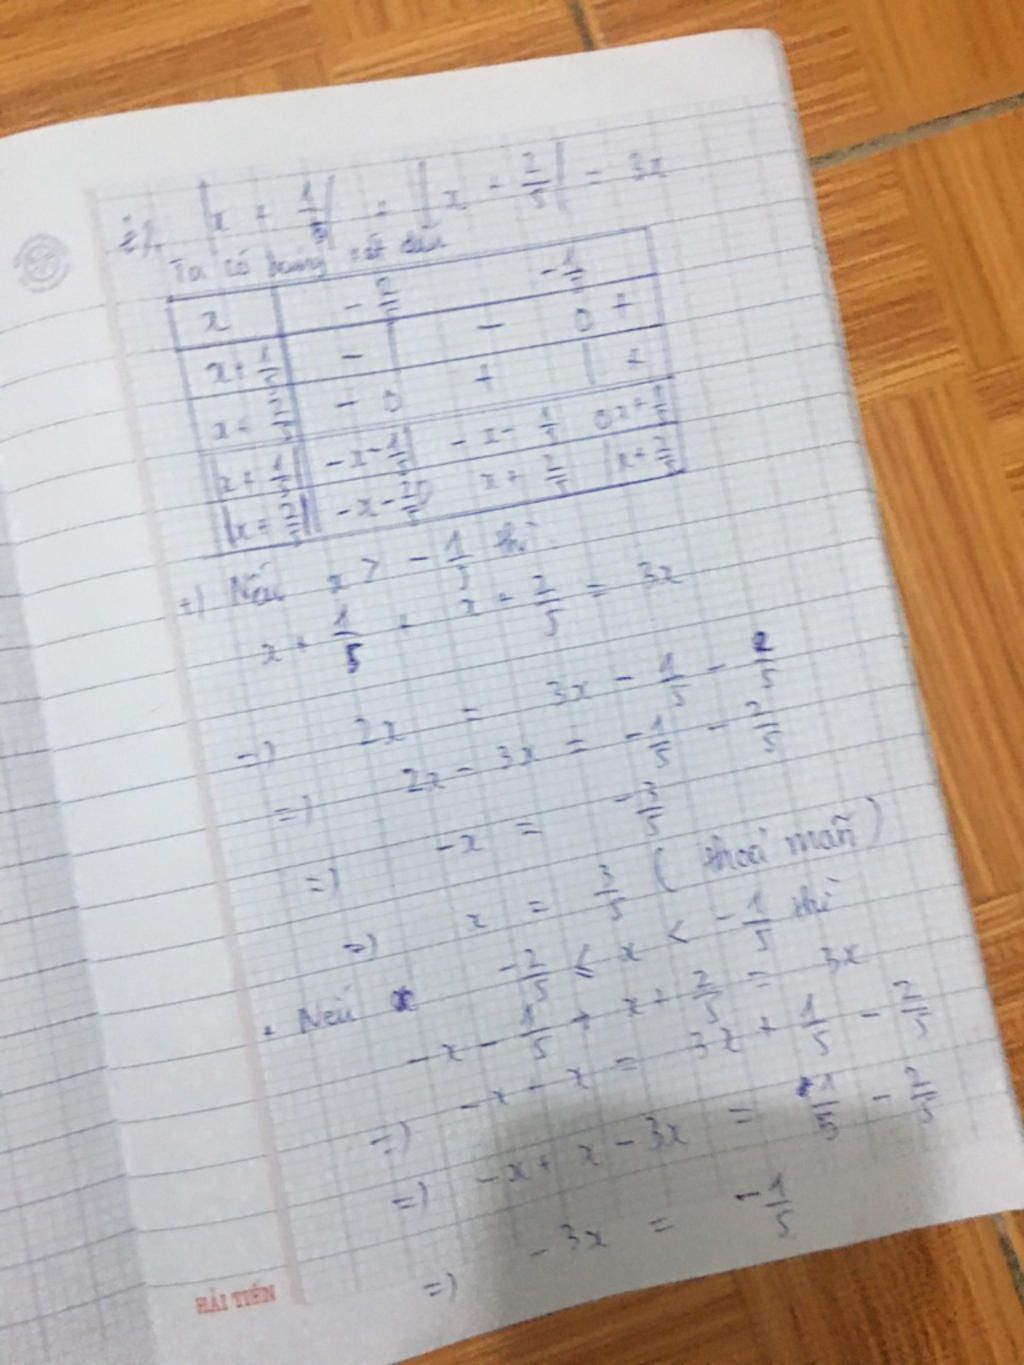 |x + 1/5| + |x + 2/5| = 3x
Ta có bảng xét dấu
x -2/5 -1/5
x + 1/5 - - 0 +
x + 2/5 - 0 + | +
|x + 1/5| -x - 1/5 | -x - 1/5 0 x + 1/5
|x + 2/5| -x - 2/5 x + 2/5 | x + 2/5
+) Nếu x > -1/5 thì
x + 1/5 + x + 2/5 = 3x
=) 2x = 3x - 1/5 - 2/5
=) 2x - 3x = -1/5 - 2/5
=) -x = -3/5
=) x = 3/5 (thoả mãn)
+ Nếu -2/5 ≤ x < -1/5 thì
-x - 1/5 + x + 2/5 = 3x
=) -x + x = 3x + 1/5 - 2/5
=) -x + x - 3x = 1/5 - 2/5
=) -3x = -1/5
HẢI TIẾN